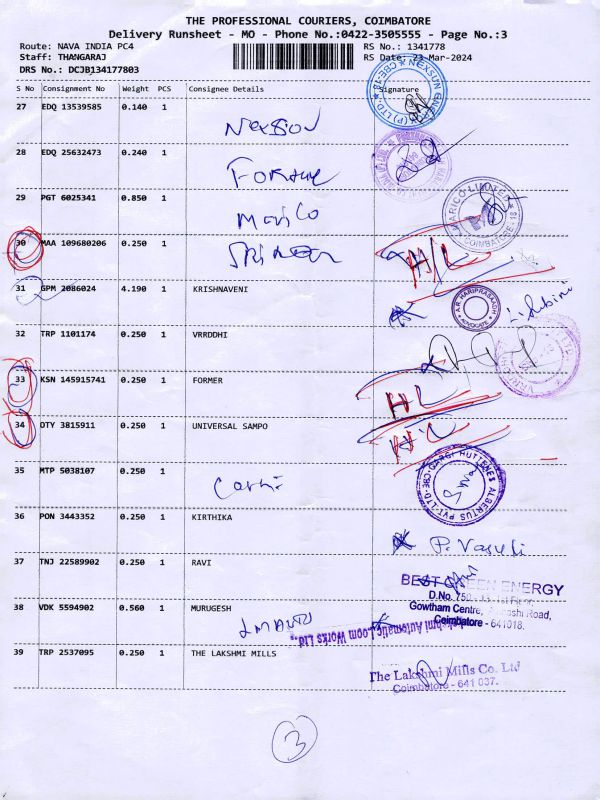 THE PROFESSIONAL COURIERS, COIMBATORE
Delivery Runsheet - MO - Phone No.:0422-3505555 - Page No.:3
Route: NAVA INDIA PC4 RS No.: 1341778
Staff: THANGARAJ RS Date: 23-Mar-2024
DRS No.: DCJB134177803
S No Consignment No Weight PCS Consignee Details Signature
27 EDQ 13539585 0.140 1
Nexson
NEXSUN ENERGY (P) LTD. CBE-18
28 EDQ 25632473 0.240 1
Fortune
29 PGT 6025341 0.850 1
Marico
MARICO LIMITED COIMBATORE - 18
30 MAA 109680206 0.250 1
H/L
31 GPM 2086024 4.190 1 KRISHNAVENI
A.R. HARIPRASAADH ADVOCATE
32 TRP 1101174 0.250 1 VRRDDHI
33 KSN 145915741 0.250 1 FORMER
HL
34 DTY 3815911 0.250 1 UNIVERSAL SAMPO
H/L
35 MTP 5038107 0.250 1
GARGI HUTTENES ALBERTUS PVT-LTD-CBE
36 PON 3443352 0.250 1 KIRTHIKA
37 TNJ 22589902 0.250 1 RAVI
BEST GREEN ENERGY
D.No. 750
Gowtham Centre, Avinashi Road,
Coimbatore - 641018.
38 VDK 5594902 0.560 1 MURUGESH
Lakshmi Automatic Loom Works Ltd.,
39 TRP 2537095 0.250 1 THE LAKSHMI MILLS
The Lakshmi Mills Co. Ltd
Coimbatore - 641 037.
3